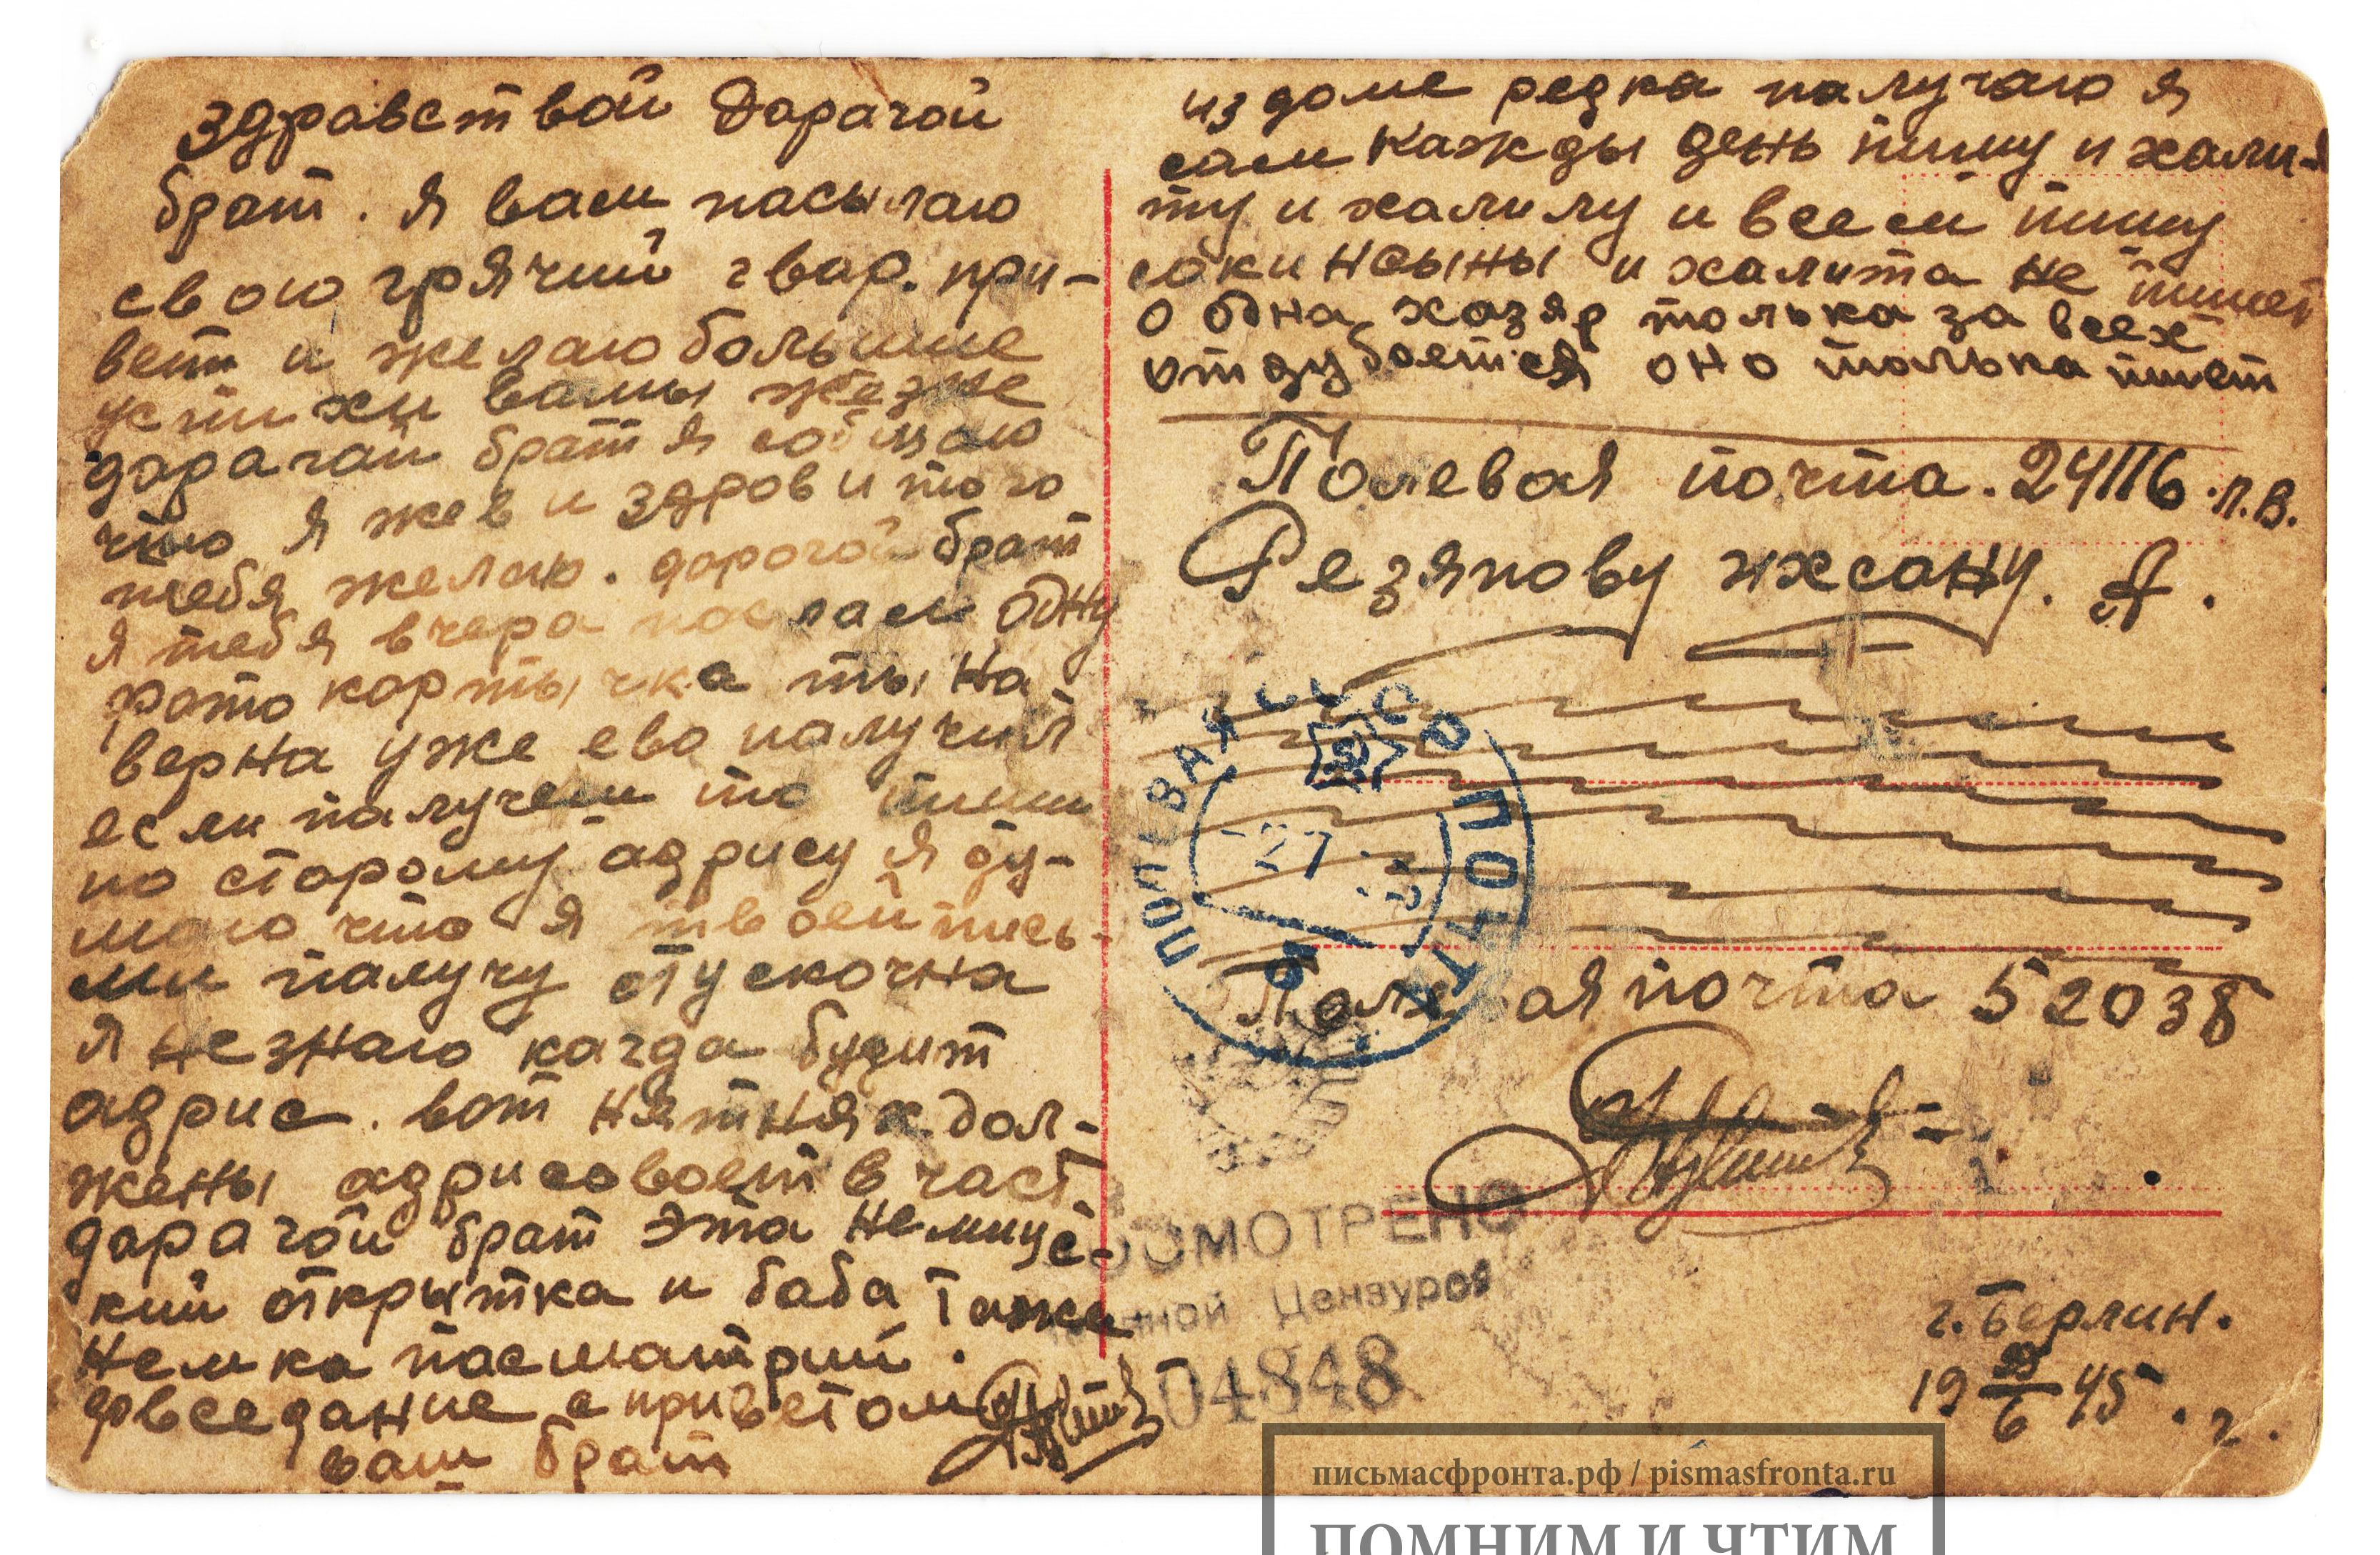 Здравствой Дарагой
брат. Я вам пасылаю
свою грячий гвар. при-
вет и желаю большие
успихи вашы жезне
дарагай брат я собщаю
что я жев и здоров и того
тебя желаю. дорогой брат
Я тебя вчера послал одну
фото картычка ты на
верна уже ево палучил
если палучеш то пиши
по старому адрису я ду-
маю что я твоей пись-
ми палучу
Я не знаю кагда будит
адрис. вот дол-
жены адрисовоет в част.
дарагой брат эта немицс-
кий открытка и баба тоже
немка пасматрий.
довседание с приветом
ваш брат
из доме редка палучаю я
сам кажды день пишу и хали-
ту и халилу и всем пишу
и халита не пишет
о одна хазяр толька за всех
отдубается оно толька пишет
Полевая почта. 24116. Л.В.
Резяпову ихсану. А.
ПОЛЕВАЯ ПОЧТА
СССР
27
Полевая почта 52038
ОСМОТРЕНО
Военной Цензурой
04848
г. Берлин.
19 6 45. г.
письмасфронта.рф / pismasfronta.ru
ПОМНИМ И ЧТИМ